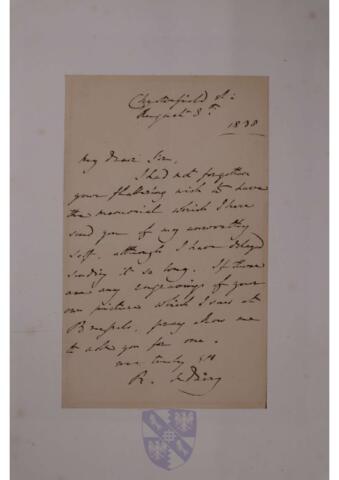 Chesterfield St:
August 8th.
1838
My dear Sir,
I had not forgotten
your flattering wish to have
the memorial which I here
send you of my unworthy
self, although I have delayed
sending it so long. If there
are any engravings of your
own picture which I saw at
Brussels, pray allow me
to ask you for one.
truly yrs
R.